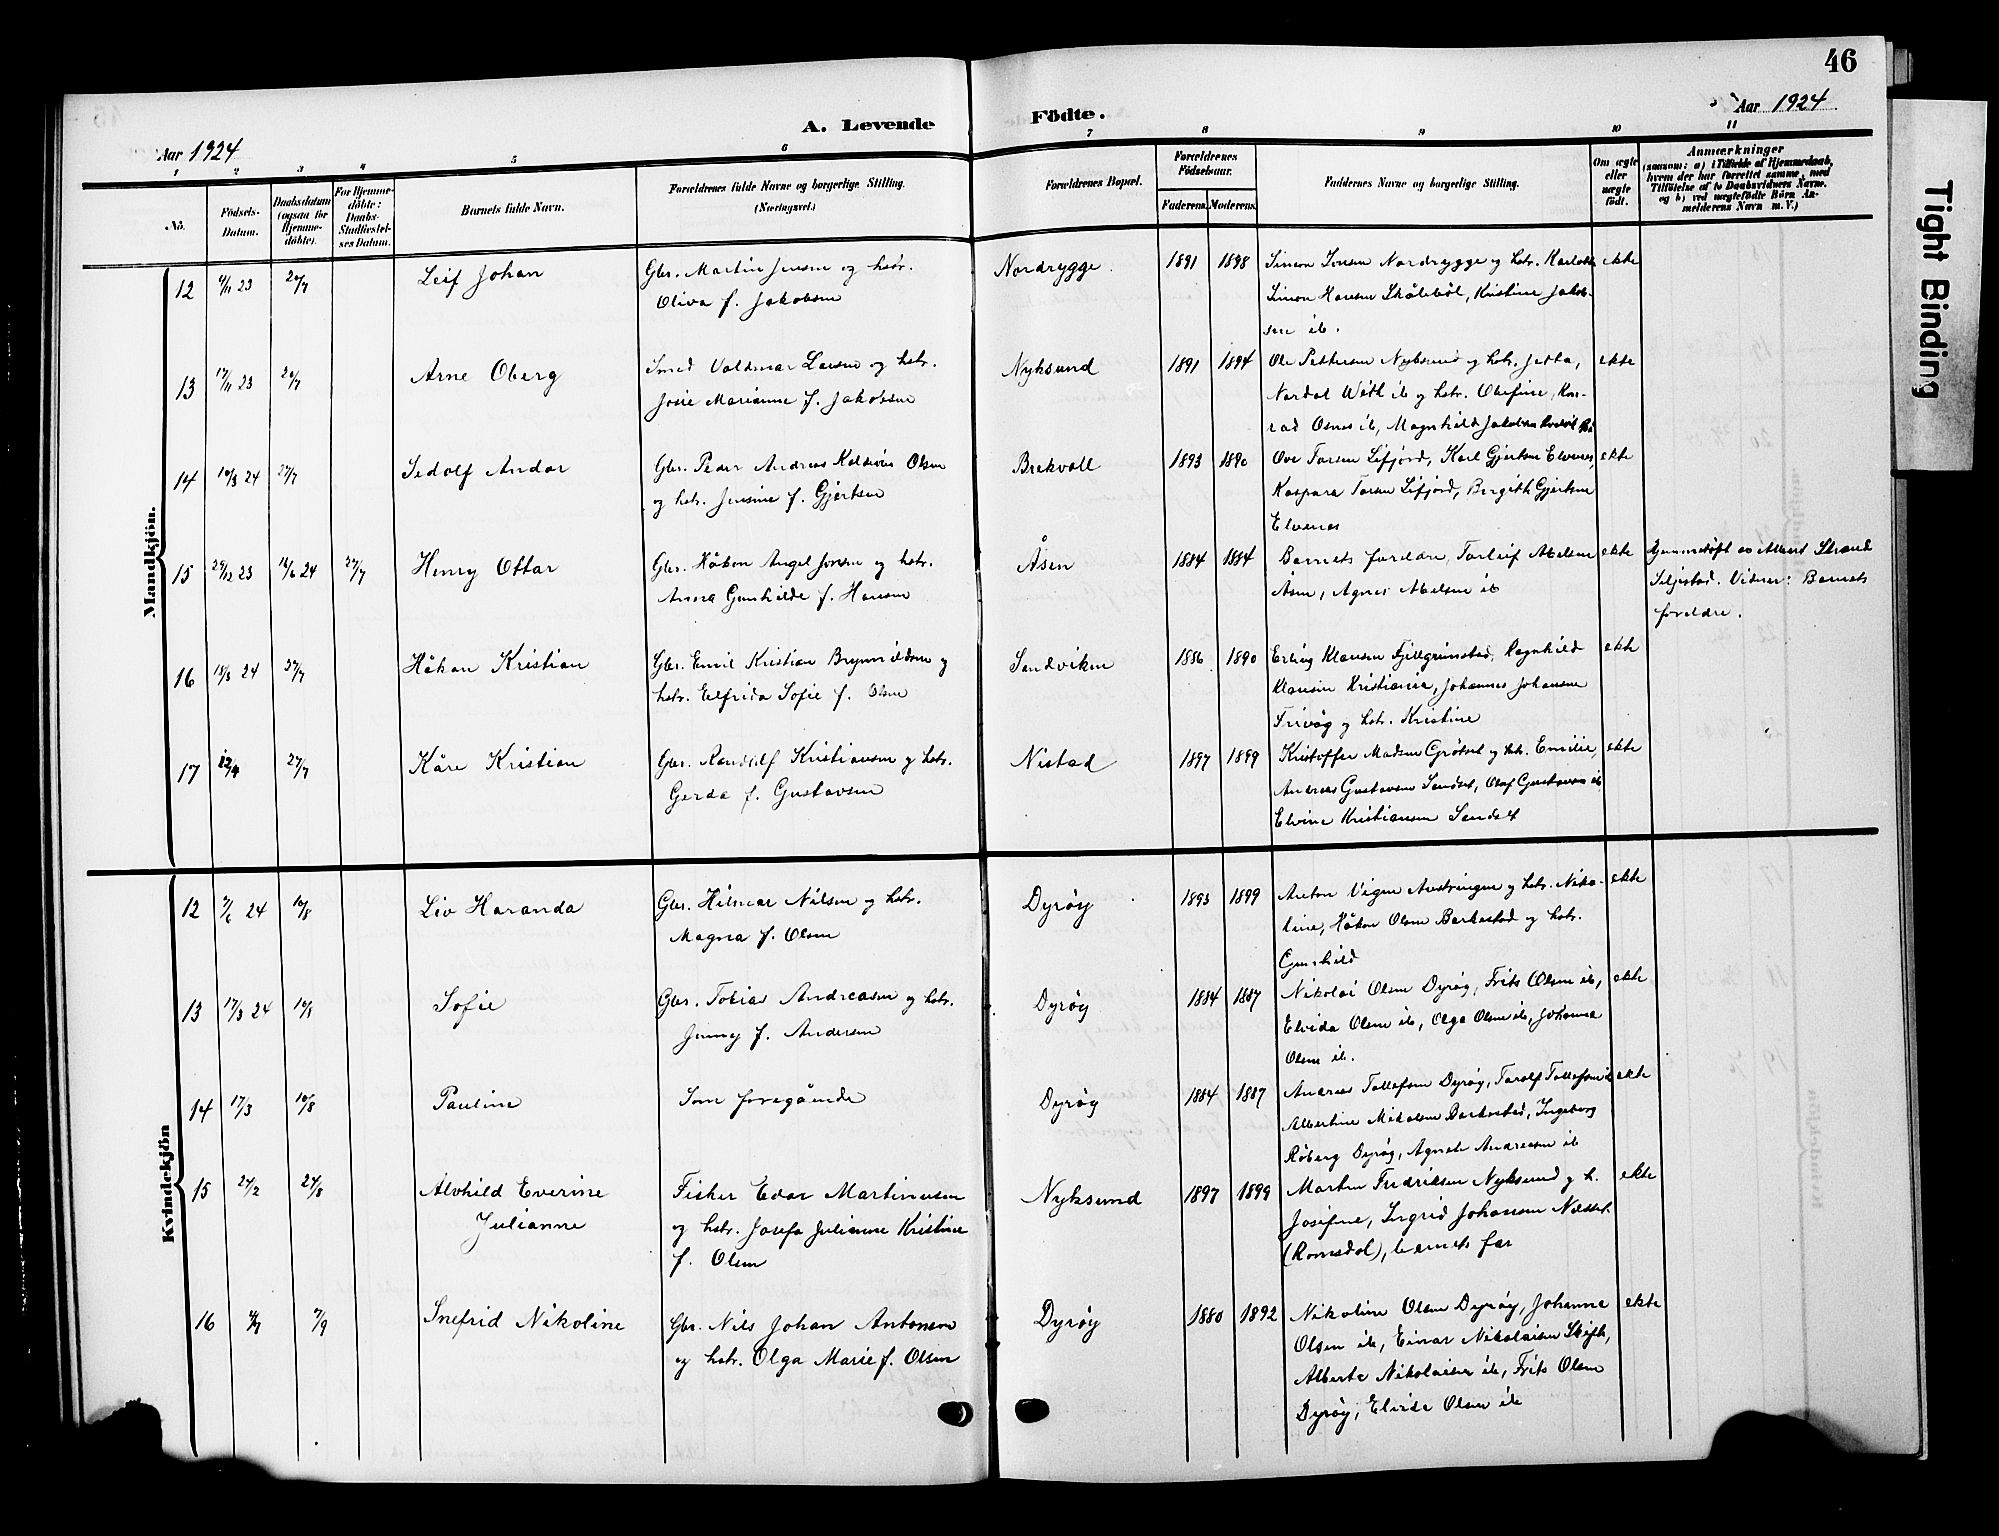 46
Aar 1924
A. Levende Födte.
Aar 1924
Tight Binding
1 2 3 4 5 6 7 8 9 10 11
No.
Födsels-Datum.
Daabsdatum (ogsaa for Hjemmedöbte).
For Hjemmedöbte: Daabs-Stadfæstelses Datum.
Barnets fulde Navn.
Forældrenes fulde Navne og borgerlige Stilling. (Næringsvei.)
Forældrenes Bopæl.
Forældrenes Födselsaar.
Faderens. Moderens.
Faddernes Navne og borgerlige Stilling.
Om ægte eller uægte født.
Anmærkninger
(saasom: a) i Tilfælde af Hjemmedaab, hvem der har forrettet samme, med Tilföielse af to Daabsvidners Navne, og b) ved uægtefödte Börn Anmelderens Navn m. V.)
Mandkjön.
12 23 20/7 Leif Johan
Gbr. Martin Jensen og hstr.
Oliva f. Jakobsen
Nordrygge. 1891 1898
Simon Jensen Nordrygge og hstr. ekte
Simon Hansen Skålebøl, Kristine Jakob-
sen ib.
13 17/11 23 20/7 Arne Oberg
Smed Valdmar Larsen og hstr.
Josie Marianne f. Jakobsen
Nyksund 1891 1894
Ole Pettersen Nyksund og hstr. Jetta, ekte
ib og hstr. Olufine, Kon-
rad Osnes ib, Magnhild Jakobsen
14 10/3 24 27/7 Sedolf Andor
Gbr. Peder Andreas Olsen
og hstr. Jensine f. Gjertsen
Brekvoll 1893 1890
Ove Torsen Lifjord, Karl Gjertsen Elvenes, ekte
Kaspara Torsen Lifjord, Birgith Gjertsen
Elvenes
15 29/12 23 16/6 24 27/7 Henry Ottar
Gbr. Håkon Angel Jensen og hstr.
Anna Gunhilde f. Hansen
Åsen 1884 1884
Barnets foreldre, Torleif Abelsen ekte
Åsen, Agnes Abelsen ib
Hjemmedøpt av Albert Strand
Seljestad. Vidner: Barnets
foreldre.
16 18/3 24 27/7 Håkon Kristian
Gbr. Emil Kristian Brynnildsen og
hstr. Elfrida Sofie f. Olsen
Sandviken 1886 1890
Erling Klausen Fjellgrimstad, Ragnhild ekte
Klausen Kristiania, Johannes Johansen
Trivåg og hstr. Kristine
17 27/7 Kåre Kristian
Gbr. Randulf Kristiansen og hstr.
Gerda f. Gustavsen
Nistad 1897 1899
Kristoffer Madsen Grøtset og hstr. Emilie, ekte
Andreas Gustavsen Sandset, Olaf Gustavsen ib
Elvine Kristiansen Sandset
Kvindekjön
12 7/6 24 10/8 Liv Haranda
Gbr. Hilmar Nilsen og hstr.
Magna f. Olsen
Dyrøy 1893 1899
Anton Vigen Austringen og hstr. Niko- ekte
line, Håkon Olsen Barkestad og hstr.
Gunhild
13 17/3 24 10/8 Sofie
Gbr. Tobias Andreasen og hstr.
Jenny f. Andersen
Dyrøy 1884 1887
Nikolai Olsen Dyrøy, Frits Olsen ib, ekte
Elvida Olsen ib, Olga Olsen ib, Johanna
Olsen ib.
14 17/3 10/8 Pauline
Som foregående
Dyrøy 1884 1887
Andreas Tollefsen Dyrøy, Torolf Tollefsen ib ekte
Albertine Mikalsen Barkestad, Ingeborg
Røberg Dyrøy, Agnete Andreasen ib
15 24/2 24/8 Alvhild Everine
Julianne
Fisker Edor Martinusen
og hstr. Josefa Julianne Kristine
f. Olsen
Nyksund 1897 1899
Martin Fredriksen Nyksund og h. ekte
Josefine, Ingrid Johansen Nesset
(Romsdal), barnets far
16 7/9 Snefrid Nikoline
Gbr. Nils Johan Antonsen
og hstr. Olga Marie f. Olsen
Dyrøy 1880 1892
Nikoline Olsen Dyrøy, Johanne ekte
Olsen ib, Einar Nikolaisen
Alberte Nikolaisen ib, Frits Olsen
Dyrøy, Elvide Olsen ib